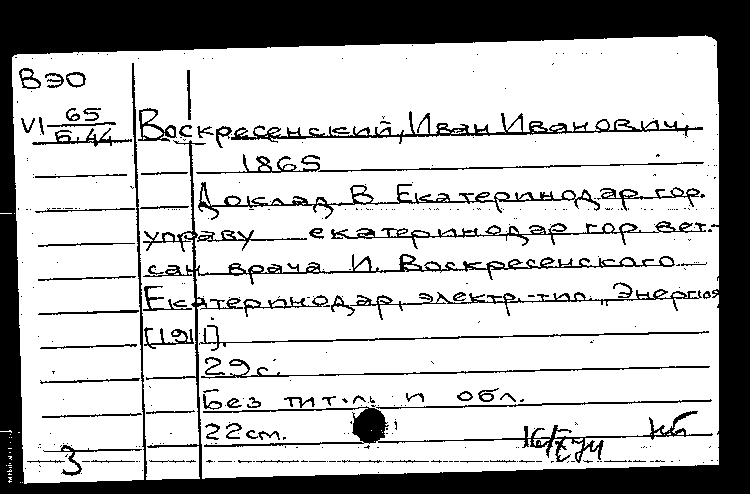 ВЭО
VI 65
Б.44
Воскресенский, Иван Иванович,
1865
Доклад в Екатеринодар. гор.
управу екатеринодар. гор. вет.-
сан. врача И. Воскресенского
Екатеринодар, электр.-тип. „Энергия"
[1911].
29 с.
Без тит. л. и обл.
22 см.
3